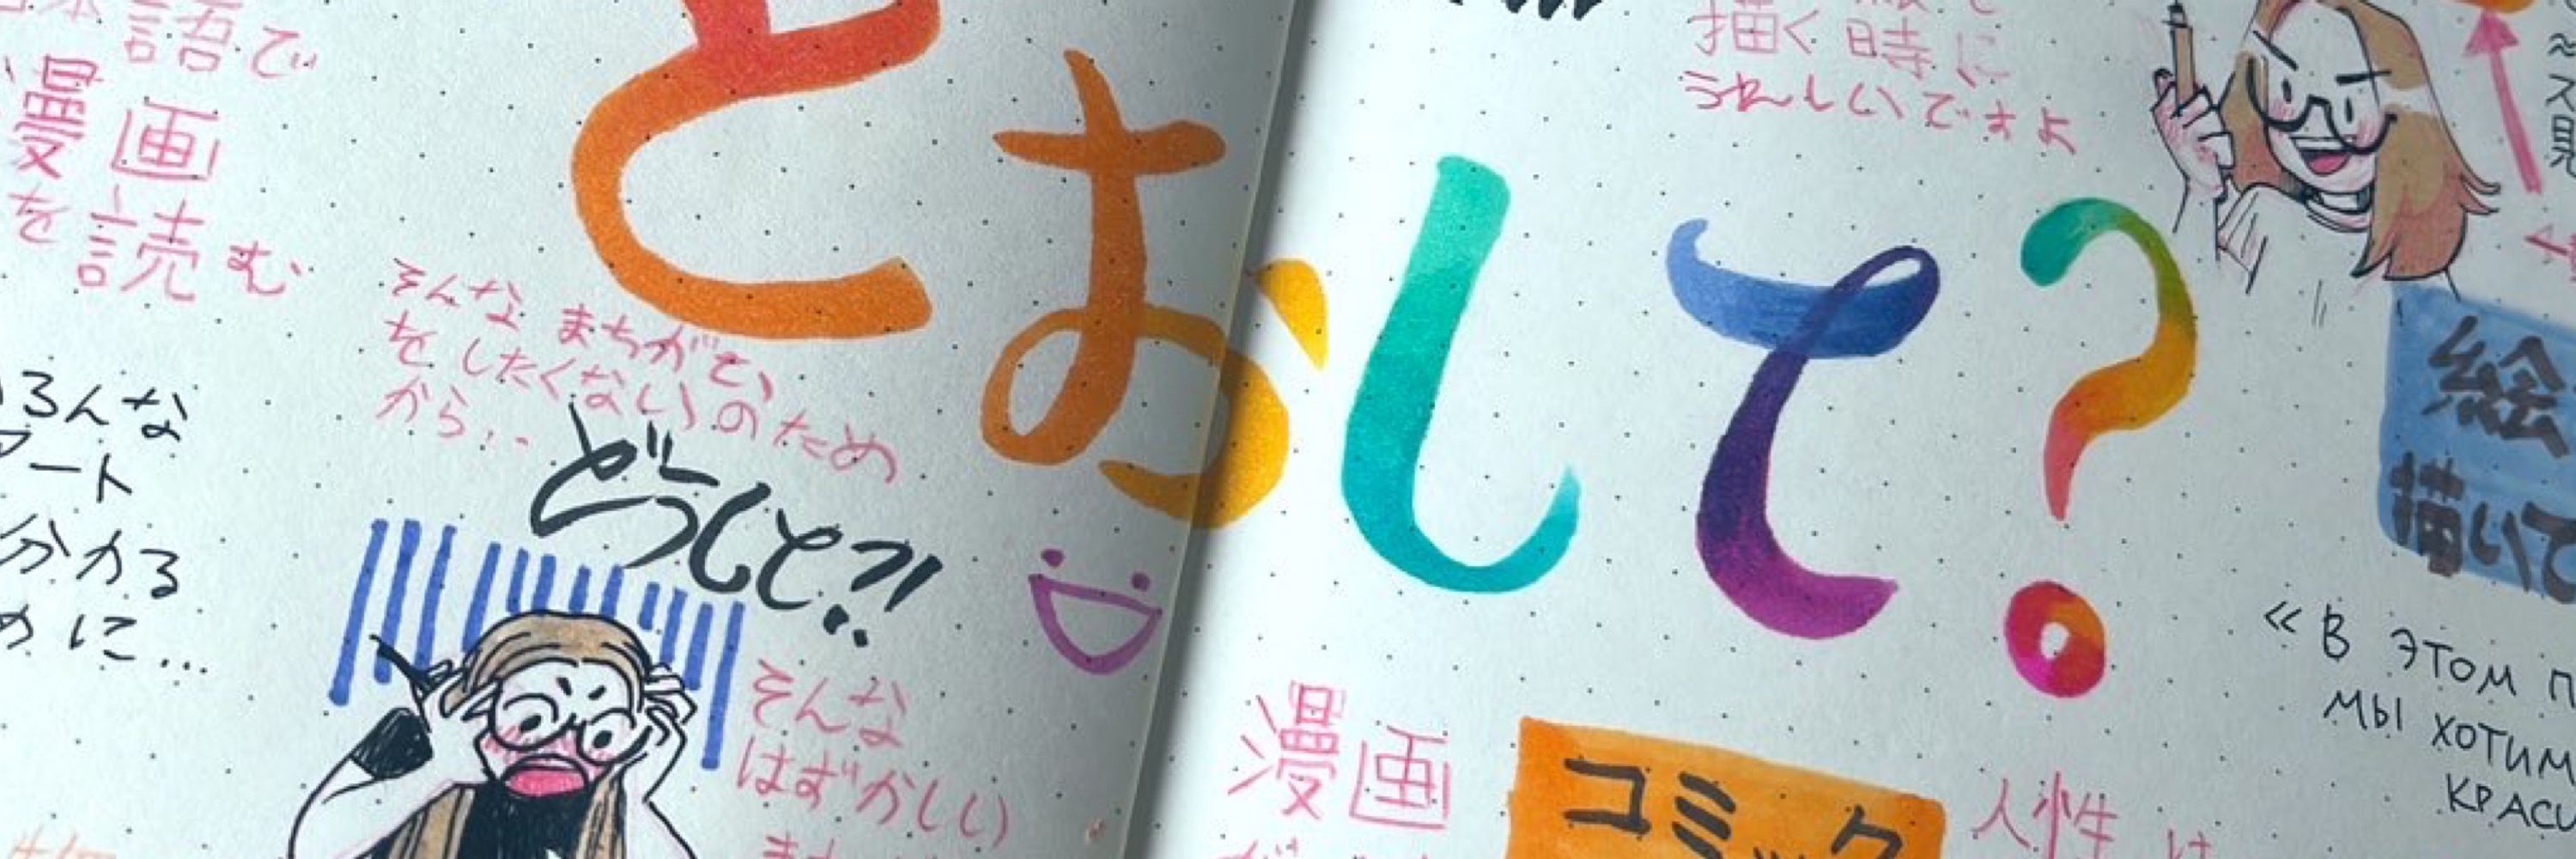 語で
漫画
を読む
そんな まちがを、
をしたくないのため
から...
どうしと?!
ろんな
アート
分かる
めに...
そんな
はずかしい
とおして?
描く時に
うれしいですよ
絵
描いて
«В ЭТОМ
МЫ ХОТИМ
漫画
コミック
人性は